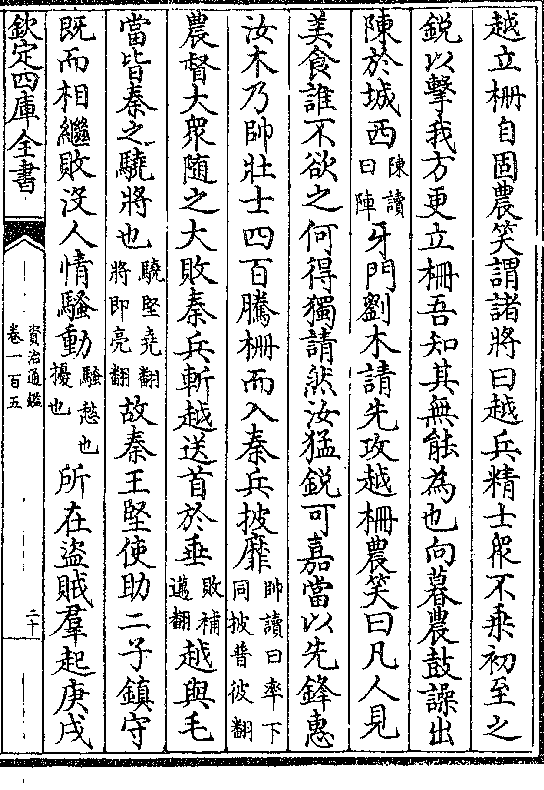 越立柵自固農笑謂諸將曰越兵精士衆不乗初至之
鋭以擊我方更立柵吾知其無能為也向暮農鼓譟出
陳於城西陳讀曰陣牙門劉木請先攻越柵農笑曰凡人見
美食誰不欲之何得獨請然汝猛鋭可嘉當以先鋒惠
汝木乃帥壯士四百騰柵而入秦兵披靡帥讀曰率下同披普彼翻
農督大衆隨之大敗秦兵斬越送首於垂敗補邁翻越與毛
當皆秦之驍將也驍堅堯翻將即亮翻故秦王堅使助二子鎮守
既而相繼敗沒人情騷動騷愁也擾也所在盜賊羣起庚戌
欽定四庫全書
資治通鑑
卷一百五
二十